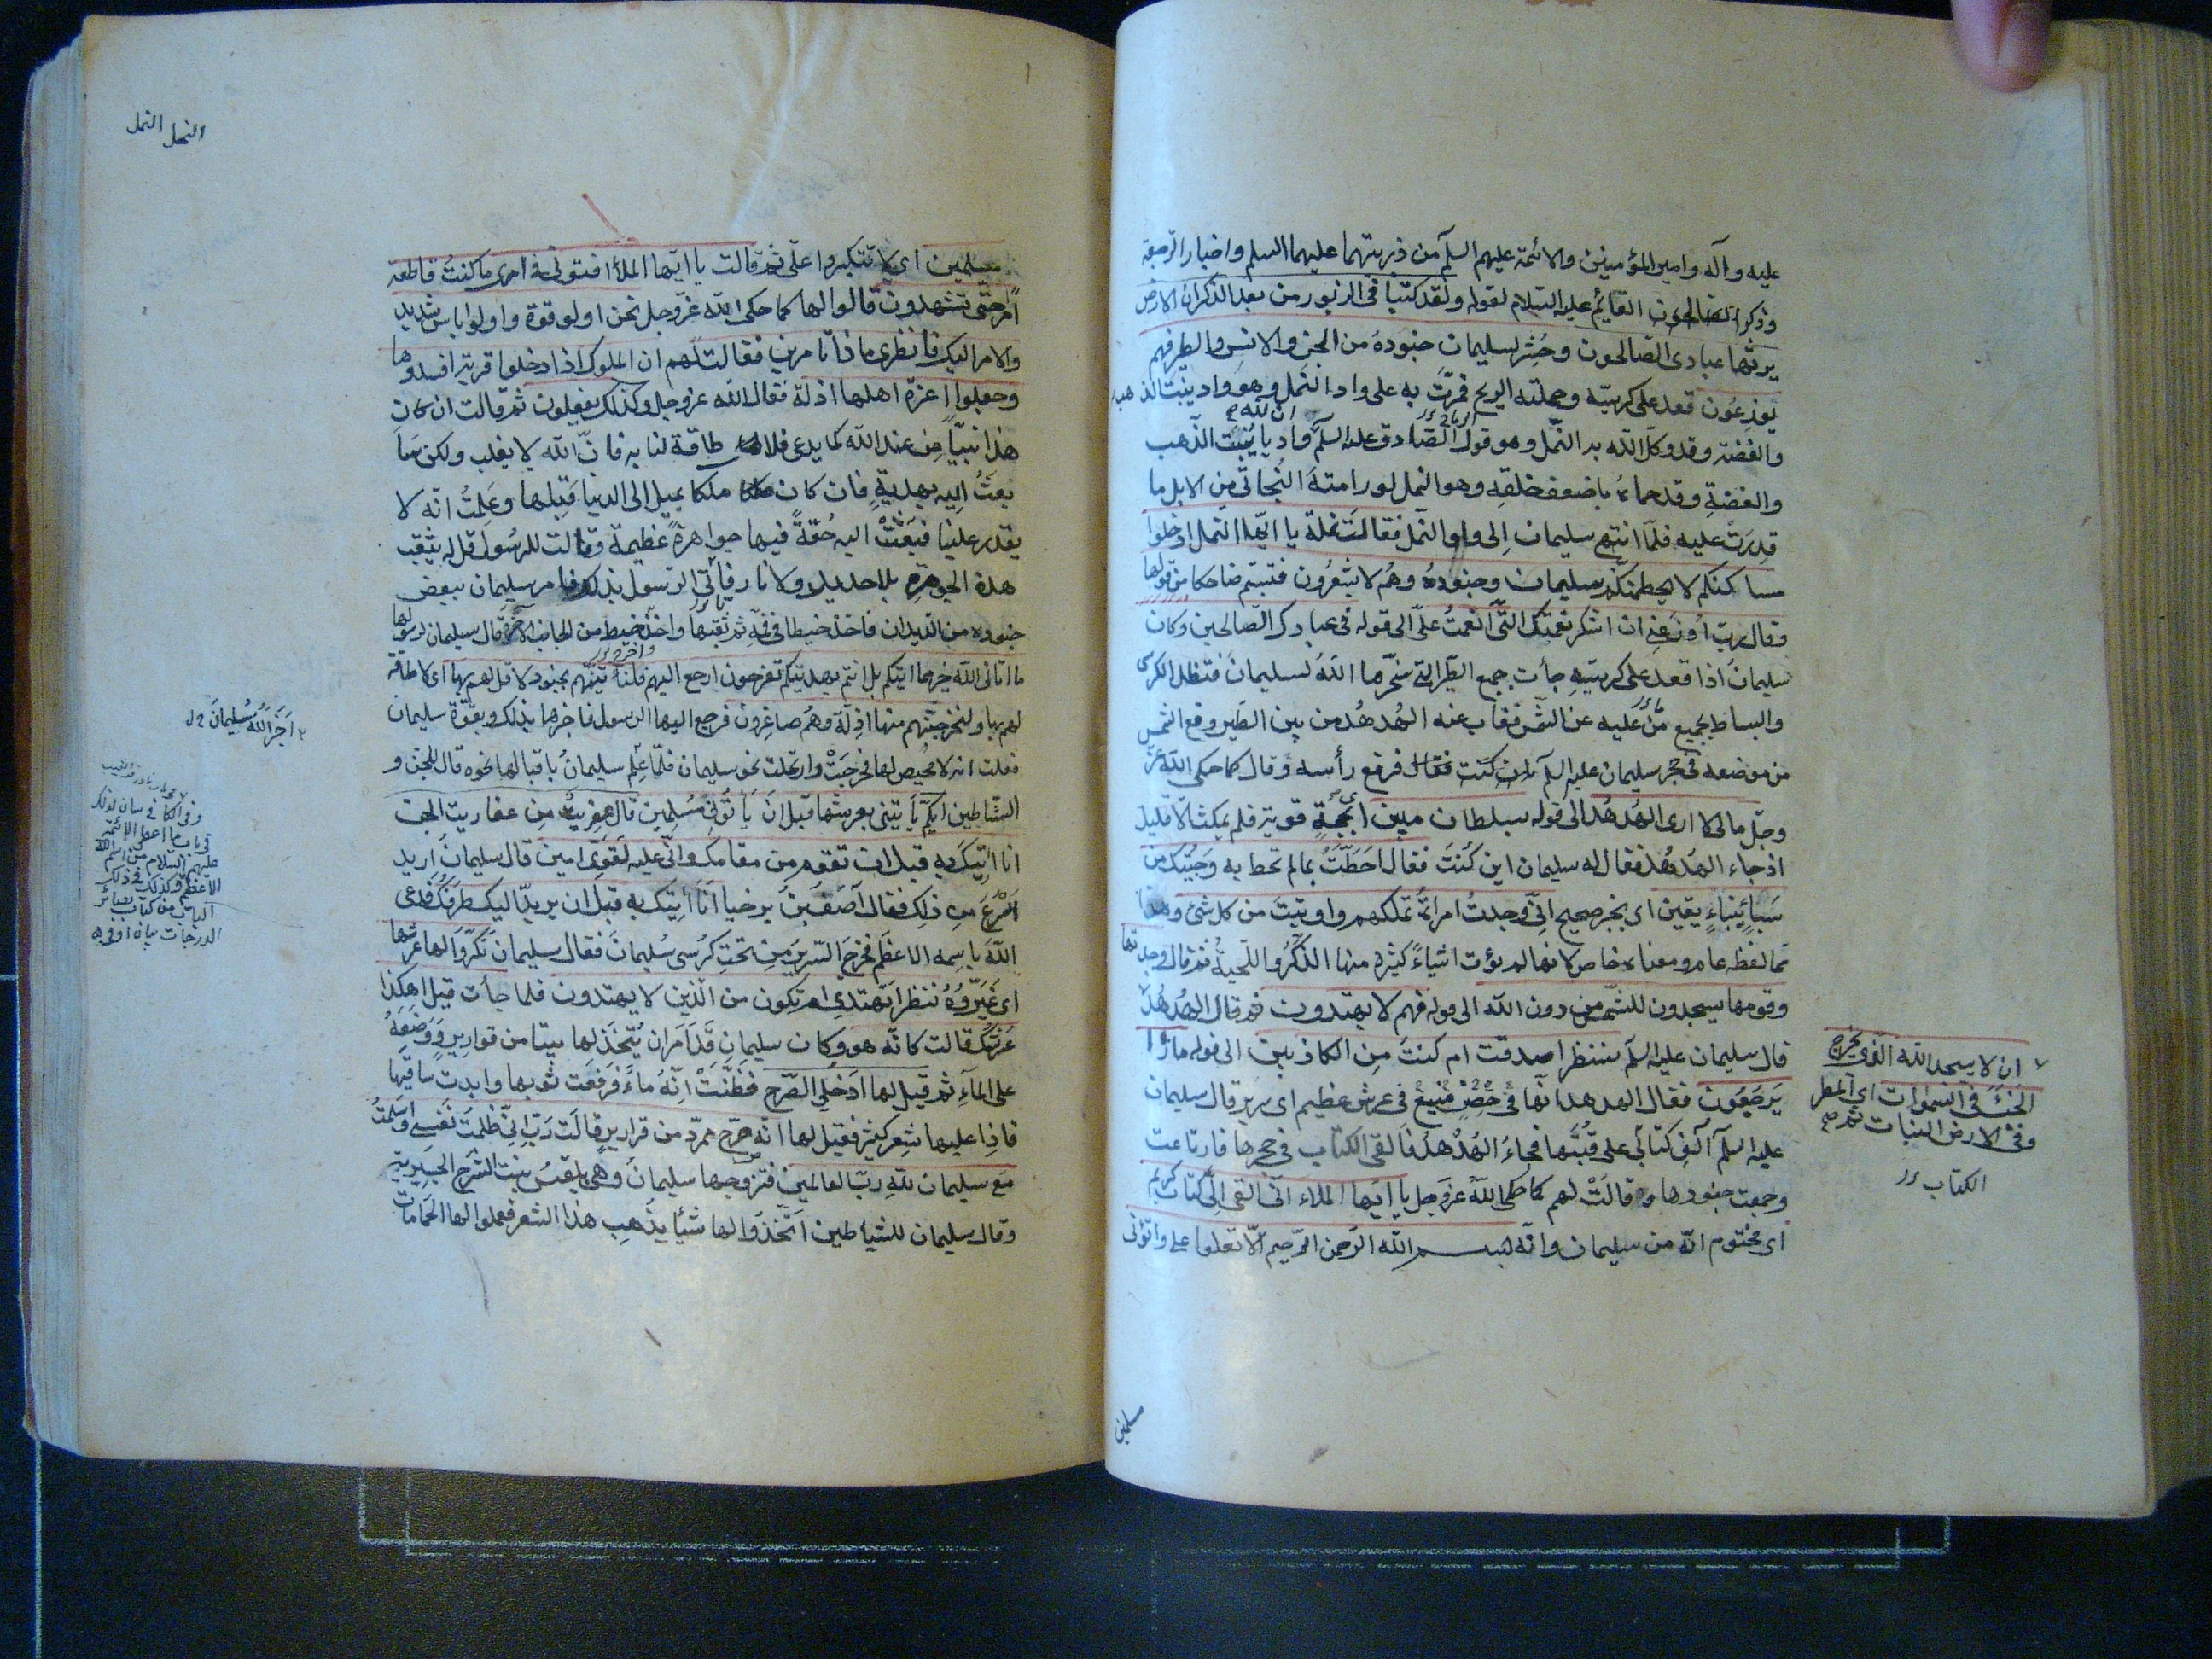 عليه وآله وامير المؤمنين والائمة عليهم السلم من ذريتهما عليهما السلم واخبار الرجعة
وذكر الصالحون القايم عليه السلام لقوله ولقد كتبنا فى الزبور من بعد الذكر ان الارض
يرثها عبادى الصالحون وحُشِر لسليمان جنودهُ من الجن والانس والطير فهم
يوزعون قعد على كرسيّه وحملته الريح فمرّت به على واد النمل وهو واد ينبت الذهب
والفضة وقد وكّل الله به النمل وهو قول الصّادق عليه السلم ان لله واديا يُنبت الذّهب
والفضةِ وقد حماهُ باضعف خلقهِ وهو النمل لو رامتهَ البُخاتى من الابل ما
قدِرَتْ عليه فلمّا انتهى سليمان اِلى واد النّمل فقالَتَ نملة يا ايّها النمل ادخلوا
مساكنكم لا يحطمنكم سليمان وجنودهُ وهُم لا يشعُرُون فتبسّم ضاحكا من قولها
وقال ربّ اَوزعنِى ان اشكر نعمتك التّى اَنعمتُ علىّ الى قوله فى عبادك الصّالحين وكان
سليمانُ اذا قعد على كرسيّهِ جأت جميع الطّير التى سخّرها اللهُ لسليمانَ فتظل الكرسى
والبساط بجميع مَن عليه عن الشّمس فغاب عنه الهُدهُد من بين الطّير وقع الشمس
من موضعه فى حجر سليمان عليه السلم فرفع رأسه وقال كما حكى الله عزّ
وجلّ مالى لا ارى الهُدهُد الى قوله بسلطان مبين اى بحُجّةٍ قوية فلم يمكث الّا قليل
اذ جاء الهُدهُد فقال له سليمان اين كُنتَ فقال احَطتُ بمالم تحط به وجئتك من
سَبأٍ بِنباءٍ يقين اى بخبر صحيح انّى وجدتُ امراةً تملكهم واوتيتَ من كل شئ وهذا
ممّا لفظه عام ومعناه خاص لانها لم تؤت اشياءً كثيرة منها الذّكرُ واللّحيةُ ثم قال وجدتها
وقومها يسجدون للشّمس من دون الله الى قوله فهم لا يهتدون ثم قال الهُدهُدُ
قال سليمان عليه السلم سننظر اصدقت ام كنتَ مِن الكاذبين الى قوله ماذا
يَرجِعُون فقال الهدهد انّها فى حِصْنٍ مَنيعٍ فى عرش عظيم اى سرير قال سليمان
عليه السلم اَلقِ كتابى على قُبّتها فجاءُ الهُدْهُدُ فاَلقى الكتاب فى حجرها فارتاعت
وجمعت جنودها وقالَتْ لهم كما حكى اللهَ عزوجل يا ايّها الملاء انى القى الىّ كتاب كريم
اى مختوم انّه من سليمان وانّه بسم الله الرّحمن الرّحيم الّا تعلوا على واتونى
ان لا يسجد الله الذى يخرج
الخبئَ فى السموات اى المطر
وفى الارض النبات ثم صح
الكتاب
مسلمين
النمل النمل
مسلمين اى لا تتكبروا علىّ ثم قالت يا ايها الملأ افتونى فى امرى ما كنتُ قاطعة
امرًا حتى تشهدون قالوا لها كما حكى الله عزّوجل نحن اولو قوة واولوا باس شديد
والامر اليك فانظرى ماذا تامرين فقالت لهم ان الملوك اذا دخلوا قرية افسدوها
وجعلوا اعزة اهلها اذلة فقال الله عزوجل وكذلك يفعلون ثم قالت ان كان
هذا نبيّاً مِن عند الله كما يدعى فلا طاقة لنا به فانّ الله لا يغلب ولكن سَاَ
بعثُ اليه بهديةٍ فان كان ملكا يميل الى الدنيا قبِلها وعَلِمتُ انه لا
يقدر علينا فبَعَثْتْ اليه حُقةً فيها جواهرة عظيمة وقالت للرسُول قل له يثقب
هذه الجوهرة بلا حديد ولا نار فأتى الرّسول بذلك فامر سليمان ببعض
جنوده من الديدان فاخذ خيطا فى فمه ثم ثقبها واخذ الخيط من الجانب الاخر قال سليمان لرسولها
ما اتانى الله خير مما اتيكم بل انتم بهديتكم تفرحون ارجع اليهم فلنأتينّهم بجنود لا قبل لهم بها اى لا طاقة
لهم بها ولنخرجنّهم منها اذِلّةً وهُم صاغِرُون فرجع اليها الرسول فاخبرها بذلك وبقوّة سليمان
فعلمت انه لا محيص لها فخرجَتْ وارتحلت نحو سليمان فلمّا علِم سليمانُ باقبالها نحوه قال للجن و
الشّاطين ايكم يأتينى بعرشها قبل انَ يَأتونى مُسْلِمين قال عِفريتٌ مِن عفاريت الجن
انا اتيكَ بهِ قبل ان تقوم من مقامك وانّى عليه لَقوىّ امين قال سليمانُ اُريد
اَسْرَعَ مِن ذلِك فقال آصَف بنُ برخيا اَنَا اتيَك بِهِ قبل ان يرتدّ اليك طَرفُك فدعى
اللّهَ باسمه الاعظَم فخرجَ السّرير مِن تحتِ كرُسى سُليمانَ فقال سليمان نكّروا لها عرشها
اى غَيّروُهُ ننظر اَتَهتدى ام تكون من الّذين لا يهتدون فلما جأت قيل اهكذا
عَرْشُك قالت كانّه هو وكان سليمان قَد اَمَرَ ان يُتّخذ لها بيتا من قوارير ووَضَعَهُ
على المآءِ ثم قيل لها ادخلى الصّرح فظَنّتْ انّهُ ماءً فرَفعَت ثوبها وابدت ساقيها
فاذا عليها شِعر كثير فقيل لها انّه صَرح ممرّد من قوارير قالَت رَبّ اِنّى ظلمتَ نَفسى واَسْلمتُ
مَع سليمان للهِ ربّ العالمينَ فتزوجها سليمانُ وهى بلقيسُ بنت الشّرح الحِميرية
وقال سليمان للشياطين اتّخذوا لها شيئا يُذهِب هذا الشعر فعملوا لها الحمّامات
اَخبَر اللهُ سُليمانَ
وفى الكافى
فى باب ما اعطى الائمّة
عليهم السلام من اسم الله
الاعظم وكذلك فى ذلك
الباب من كتاب بصائر
الدرجات